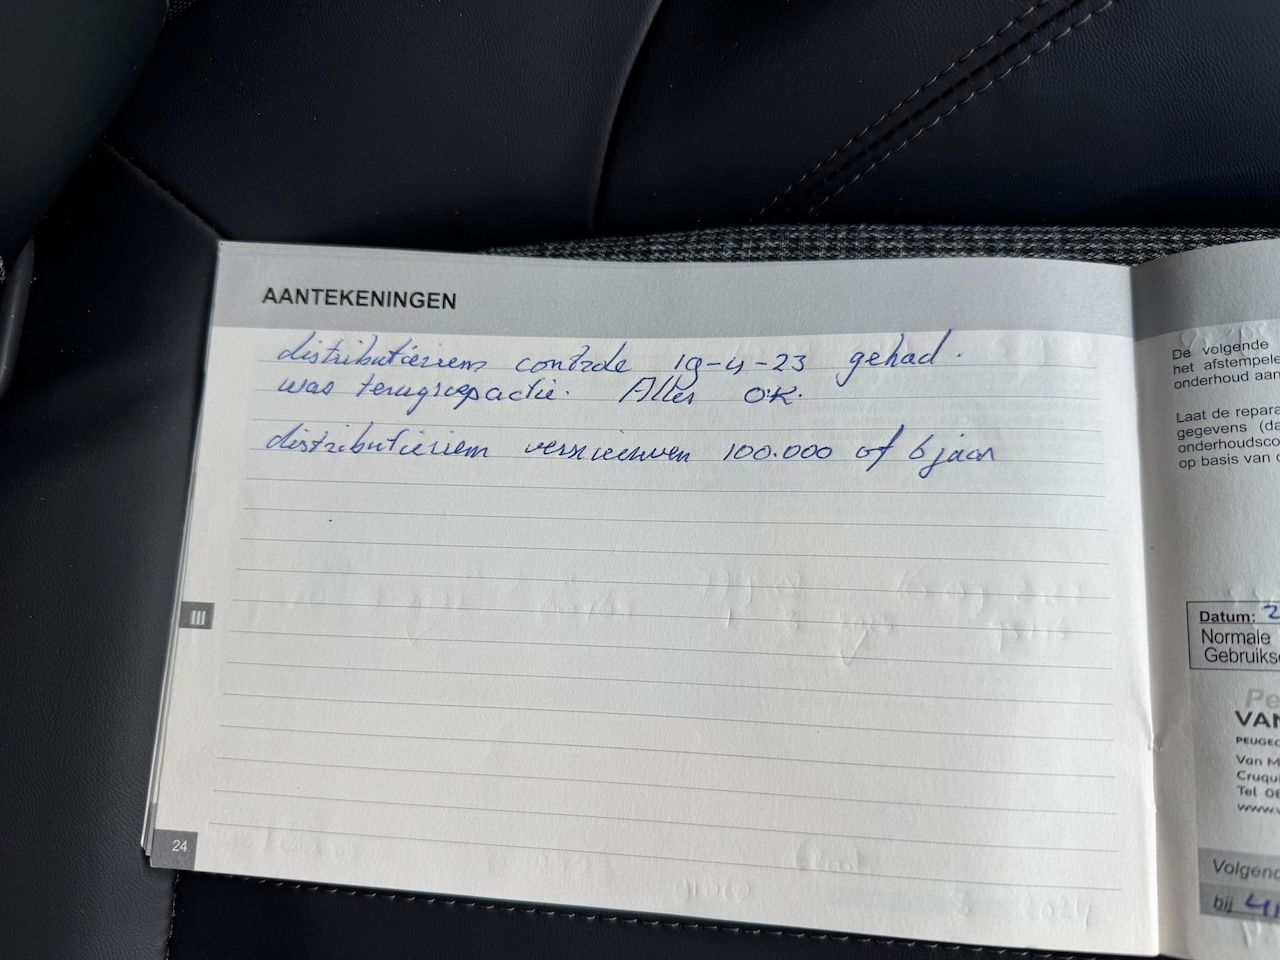 AANTEKENINGEN
distributieriem controle 19-4-23 gehad.
was terugroepactie. Alles OK.
distributieriem vernieuwen 100.000 of 6 jaar
III
24
De volgende
het afstempele
onderhoud aan
Laat de repara
gegevens (da
onderhoudsco
op basis van
Datum: 2
Normale
Gebruikso
Pe
VAN
PEUGEO
Van M
Cruqu
Tel 0
www.
Volgend
bij 41